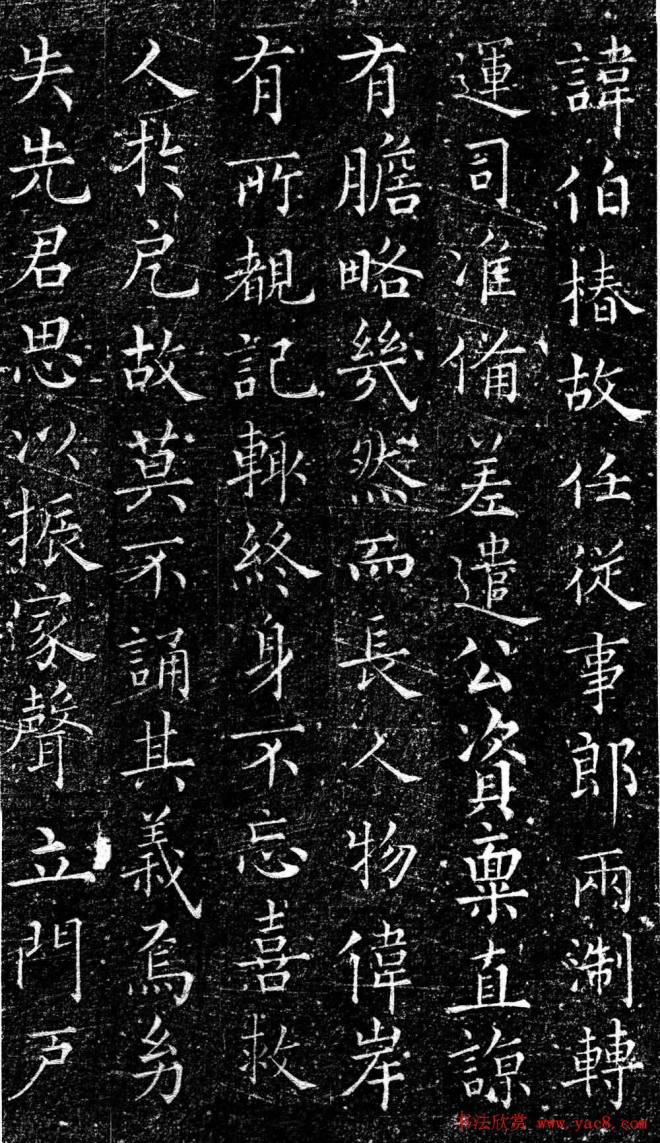 諱伯椿故任從事郎兩淛轉
運司准備差遣公資稟直諒
有膽略幾然而長人物偉岸
有所覩記輙終身不忘喜救
人於戹故莫不誦其義焉幼
失先君思以振家聲立門戶
书法欣赏 www.yac8.com